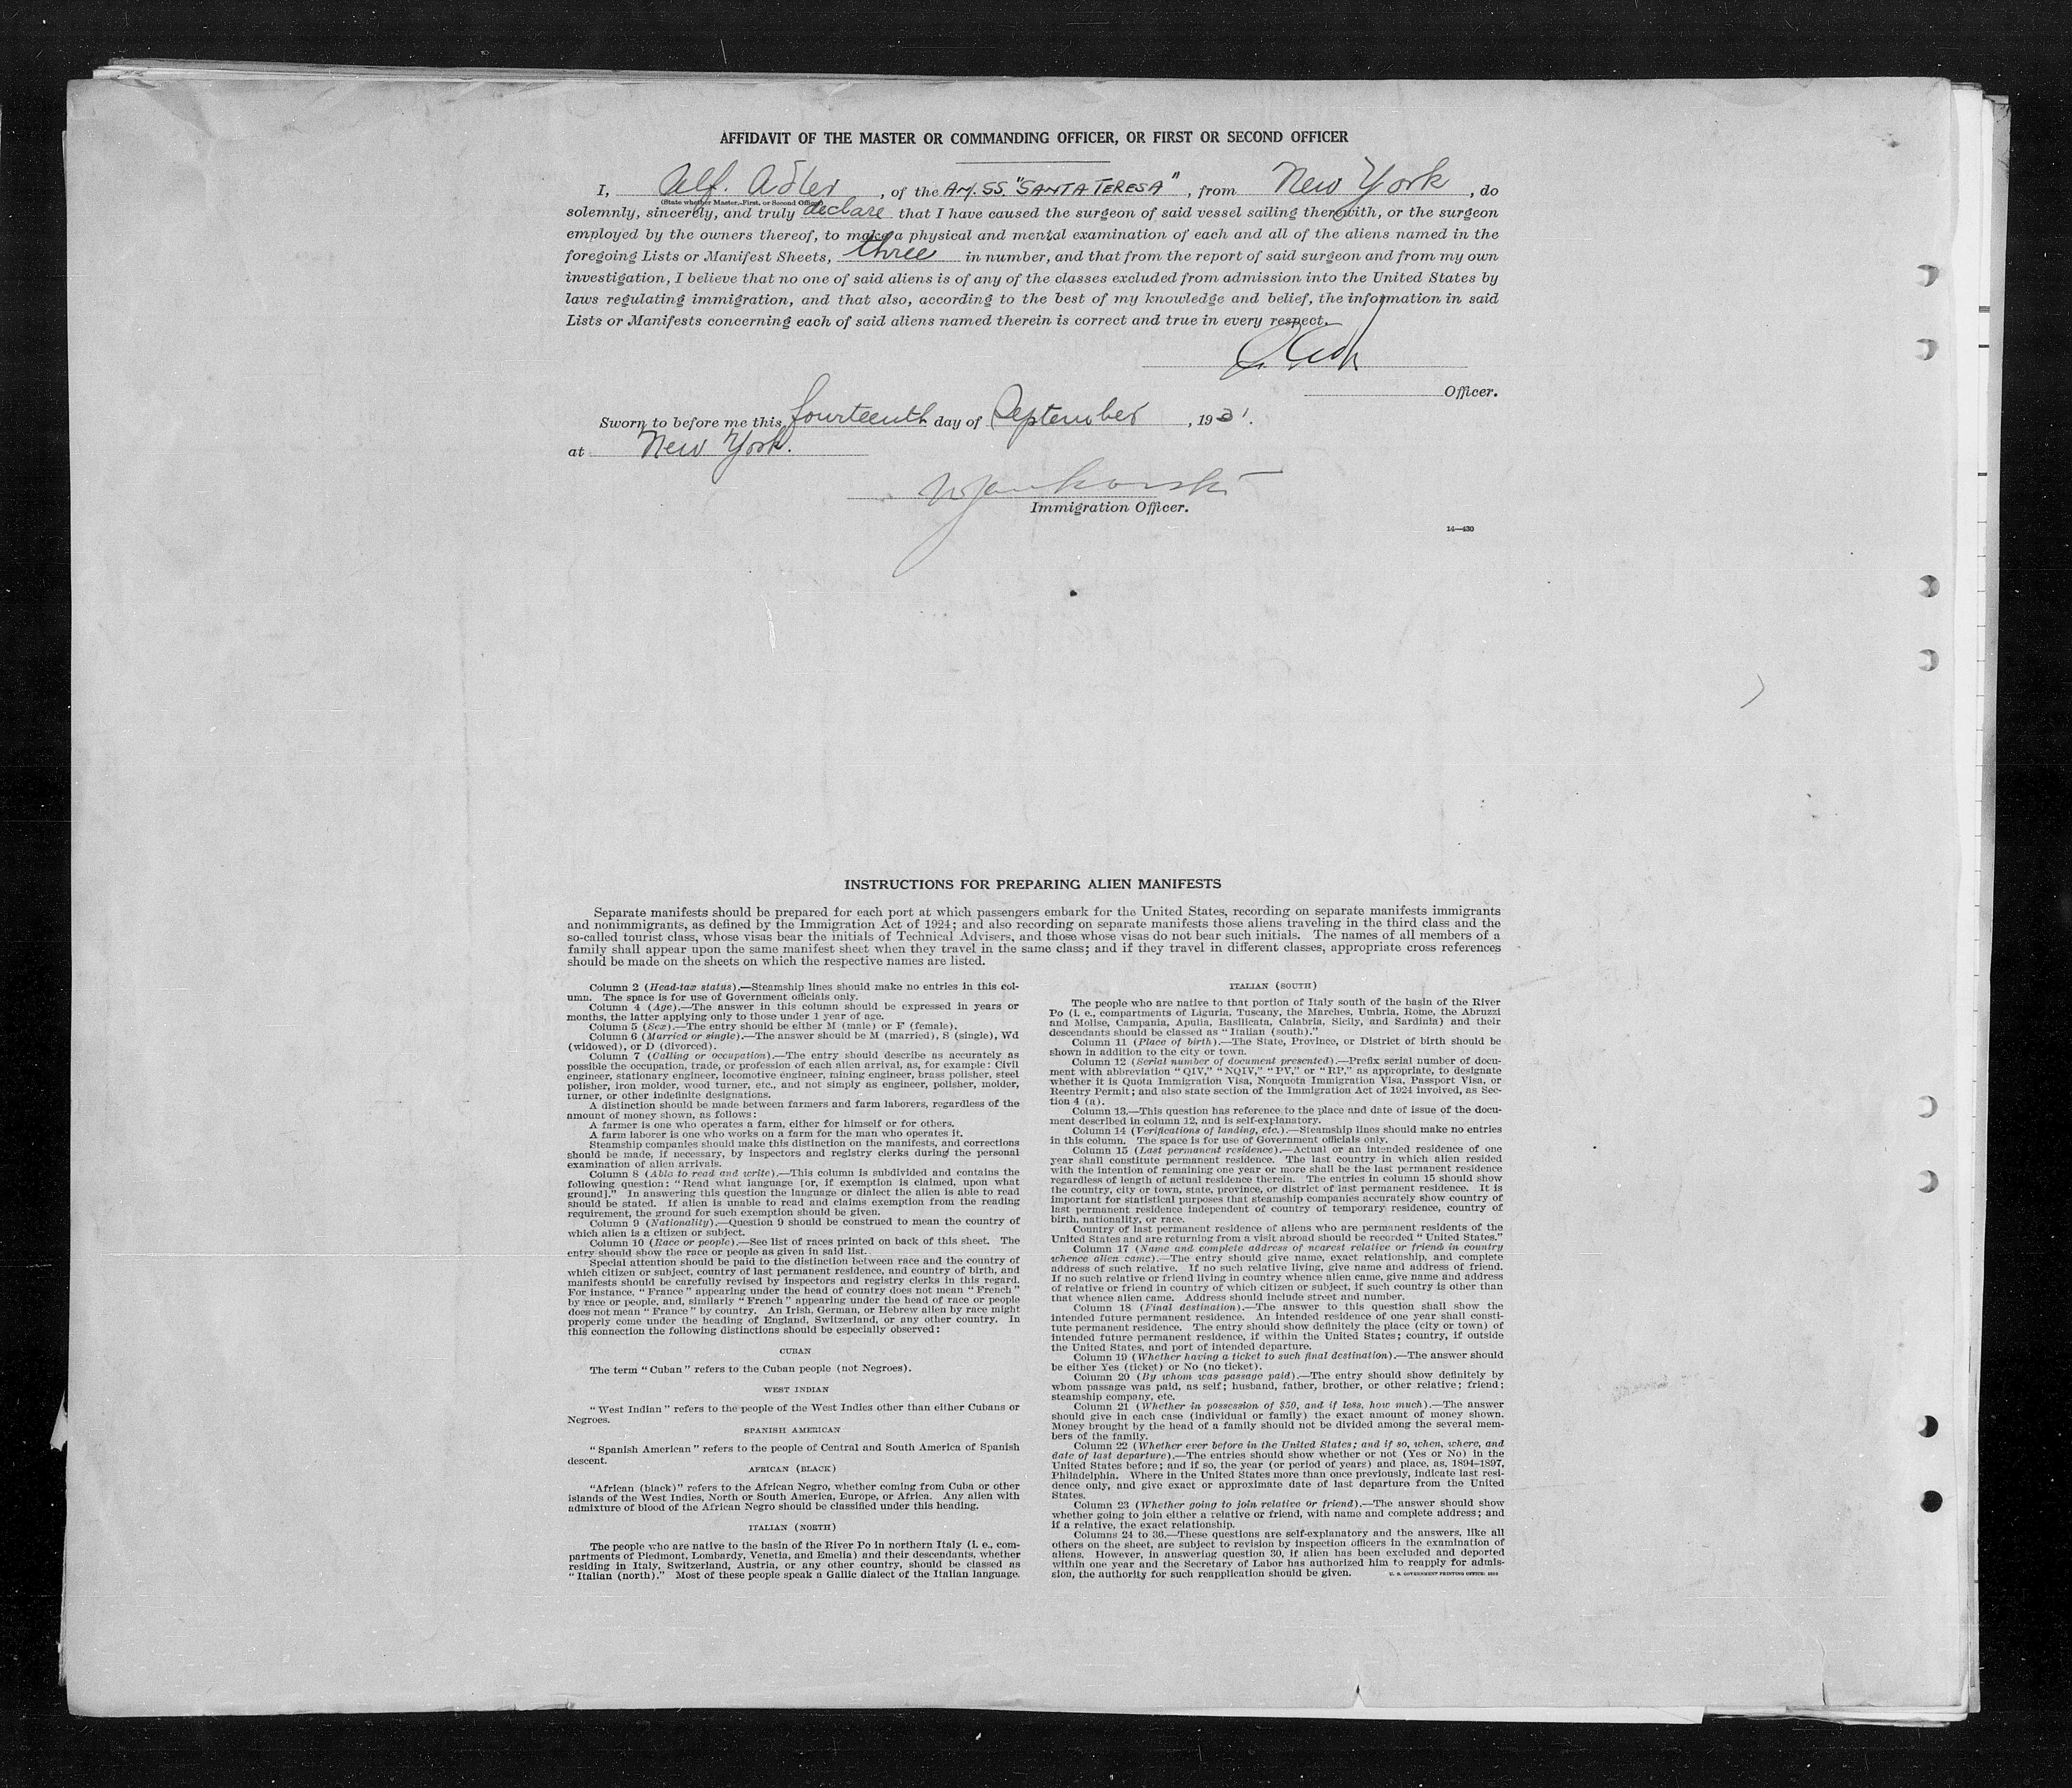 AFFIDAVIT OF THE MASTER OR COMMANDING OFFICER, OR FIRST OR SECOND OFFICER
I, Alf. Adler, of the Am. SS. "SANTA TERESA", from New York, do
(State whether Master, First, or Second Officer)
solemnly, sincerely, and truly declare that I have caused the surgeon of said vessel sailing therewith, or the surgeon
employed by the owners thereof, to make a physical and mental examination of each and all of the aliens named in the
foregoing Lists or Manifest Sheets, three in number, and that from the report of said surgeon and from my own
investigation, I believe that no one of said aliens is of any of the classes excluded from admission into the United States by
laws regulating immigration, and that also, according to the best of my knowledge and belief, the information in said
Lists or Manifests concerning each of said aliens named therein is correct and true in every respect.
Officer.
Sworn to before me this fourteenth day of September, 1931.
at New York.
Immigration Officer.
14—430
INSTRUCTIONS FOR PREPARING ALIEN MANIFESTS
Separate manifests should be prepared for each port at which passengers embark for the United States, recording on separate manifests immigrants
and nonimmigrants, as defined by the Immigration Act of 1924; and also recording on separate manifests those aliens traveling in the third class and the
so-called tourist class, whose visas bear the initials of Technical Advisers, and those whose visas do not bear such initials. The names of all members of a
family shall appear upon the same manifest sheet when they travel in the same class; and if they travel in different classes, appropriate cross references
should be made on the sheets on which the respective names are listed.
Column 2 (Head-tax status).—Steamship lines should make no entries in this col-
umn. The space is for use of Government officials only.
Column 4 (Age).—The answer in this column should be expressed in years or
months, the latter applying only to those under 1 year of age.
Column 5 (Sex).—The entry should be either M (male) or F (female).
Column 6 (Married or single).—The answer should be M (married), S (single), Wd
(widowed), or D (divorced).
Column 7 (Calling or occupation).—The entry should describe as accurately as
possible the occupation, trade, or profession of each alien arrival, as, for example: Civil
engineer, stationary engineer, locomotive engineer, mining engineer, brass polisher, steel
polisher, iron molder, wood turner, etc., and not simply as engineer, polisher, molder,
turner, or other indefinite designations.
A distinction should be made between farmers and farm laborers, regardless of the
amount of money shown, as follows:
A farmer is one who operates a farm, either for himself or for others.
A farm laborer is one who works on a farm for the man who operates it.
Steamship companies should make this distinction on the manifests, and corrections
should be made, if necessary, by inspectors and registry clerks during the personal
examination of alien arrivals.
Column 8 (Able to read and write).—This column is subdivided and contains the
following question: "Read what language [or, if exemption is claimed, upon what
ground]." In answering this question the language or dialect the alien is able to read
should be stated. If alien is unable to read and claims exemption from the reading
requirement, the ground for such exemption should be given.
Column 9 (Nationality).—Question 9 should be construed to mean the country of
which alien is a citizen or subject.
Column 10 (Race or people).—See list of races printed on back of this sheet. The
entry should show the race or people as given in said list.
Special attention should be paid to the distinction between race and the country of
which citizen or subject, country of last permanent residence, and country of birth, and
manifests should be carefully revised by inspectors and registry clerks in this regard.
For instance, "France" appearing under the head of country does not mean "French"
by race or people, and, similarly "French" appearing under the head of race or people
does not mean "France" by country. An Irish, German, or Hebrew alien by race might
properly come under the heading of England, Switzerland, or any other country. In
this connection the following distinctions should be especially observed:
CUBAN
The term "Cuban" refers to the Cuban people (not Negroes).
WEST INDIAN
"West Indian" refers to the people of the West Indies other than either Cubans or
Negroes.
SPANISH AMERICAN
"Spanish American" refers to the people of Central and South America of Spanish
descent.
AFRICAN (BLACK)
"African (black)" refers to the African Negro, whether coming from Cuba or other
islands of the West Indies, North or South America, Europe, or Africa. Any alien with
admixture of blood of the African Negro should be classified under this heading.
ITALIAN (NORTH)
The people who are native to the basin of the River Po in northern Italy (i. e., com-
partments of Piedmont, Lombardy, Venetia, and Emelia) and their descendants, whether
residing in Italy, Switzerland, Austria, or any other country, should be classed as
"Italian (north)." Most of these people speak a Gallic dialect of the Italian language.
ITALIAN (SOUTH)
The people who are native to that portion of Italy south of the basin of the River
Po (i. e., compartments of Liguria, Tuscany, the Marches, Umbria, Rome, the Abruzzi
and Molise, Campania, Apulia, Basilicata, Calabria, Sicily, and Sardinia) and their
descendants should be classed as "Italian (south)."
Column 11 (Place of birth).—The State, Province, or District of birth should be
shown in addition to the city or town.
Column 12 (Serial number of document presented).—Prefix serial number of docu-
ment with abbreviation "QIV," "NQIV," "PV," or "RP," as appropriate, to designate
whether it is Quota Immigration Visa, Nonquota Immigration Visa, Passport Visa, or
Reentry Permit; and also state section of the Immigration Act of 1924 involved, as Sec-
tion 4 (a).
Column 13.—This question has reference to the place and date of issue of the docu-
ment described in column 12, and is self-explanatory.
Column 14 (Verifications of landing, etc.).—Steamship lines should make no entries
in this column. The space is for use of Government officials only.
Column 15 (Last permanent residence).—Actual or an intended residence of one
year shall constitute permanent residence. The last country in which alien resided
with the intention of remaining one year or more shall be the last permanent residence
regardless of length of actual residence therein. The entries in column 15 should show
the country, city or town, state, province, or district of last permanent residence. It is
important for statistical purposes that steamship companies accurately show country of
last permanent residence independent of country of temporary residence, country of
birth, nationality, or race.
Country of last permanent residence of aliens who are permanent residents of the
United States and are returning from a visit abroad should be recorded "United States."
Column 17 (Name and complete address of nearest relative or friend in country
whence alien came).—The entry should give name, exact relationship, and complete
address of such relative. If no such relative living, give name and address of friend.
If no such relative or friend living in country whence alien came, give name and address
of relative or friend in country of which citizen or subject, if such country is other than
that whence alien came. Address should include street and number.
Column 18 (Final destination).—The answer to this question shall show the
intended future permanent residence. An intended residence of one year shall consti-
tute permanent residence. The entry should show definitely the place (city or town) of
intended future permanent residence, if within the United States; country, if outside
the United States, and port of intended departure.
Column 19 (Whether having a ticket to such final destination).—The answer should
be either Yes (ticket) or No (no ticket).
Column 20 (By whom was passage paid).—The entry should show definitely by
whom passage was paid, as self; husband, father, brother, or other relative; friend;
steamship company, etc.
Column 21 (Whether in possession of $50, and if less, how much).—The answer
should give in each case (individual or family) the exact amount of money shown.
Money brought by the head of a family should not be divided among the several mem-
bers of the family.
Column 22 (Whether ever before in the United States; and if so, when, where, and
date of last departure).—The entries should show whether or not (Yes or No) in the
United States before; and if so, the year (or period of years) and place, as, 1894–1897,
Philadelphia. Where in the United States more than once previously, indicate last resi-
dence only, and give exact or approximate date of last departure from the United
States.
Column 23 (Whether going to join relative or friend).—The answer should show
whether going to join either a relative or friend, with name and complete address; and
if a relative, the exact relationship.
Columns 24 to 36.—These questions are self-explanatory and the answers, like all
others on the sheet, are subject to revision by inspection officers in the examination of
aliens. However, in answering question 30, if alien has been excluded and deported
within one year and the Secretary of Labor has authorized him to reapply for admis-
sion, the authority for such reapplication should be given.
U. S. GOVERNMENT PRINTING OFFICE: